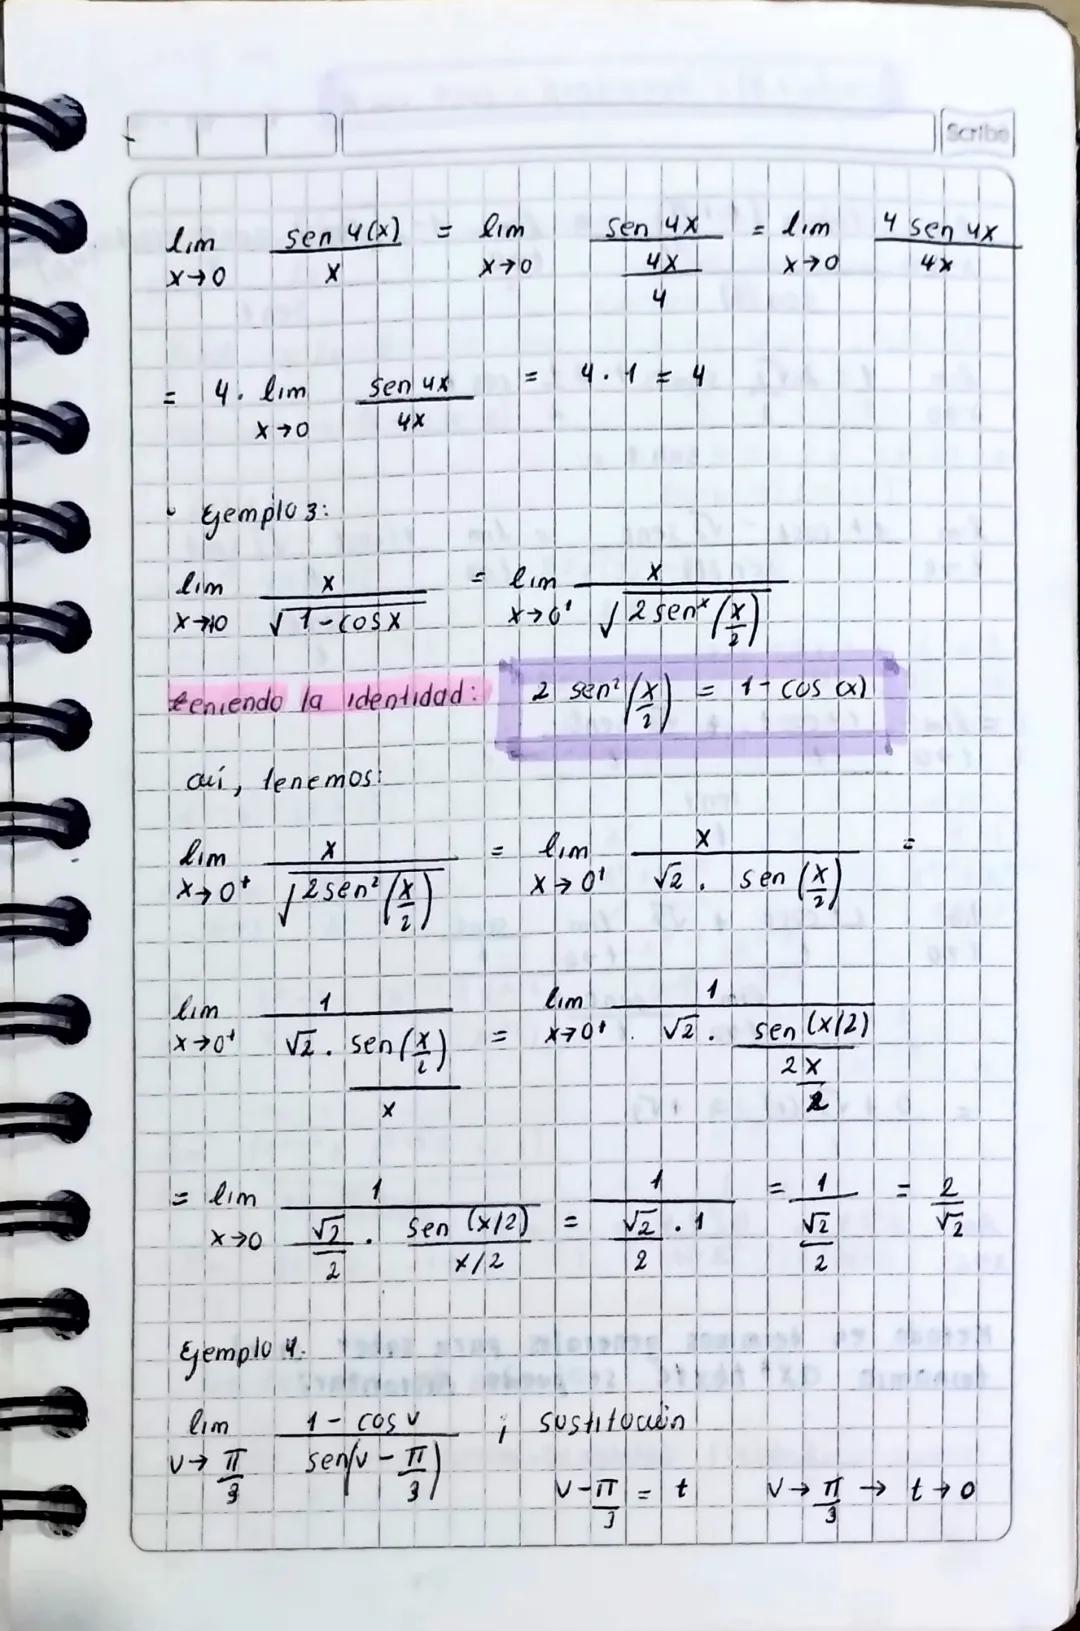 Scribe
lim x→0 sen 4(x) / x = lim x→0 sen 4x / (4x / 4) = lim x→0 4 sen 4x / 4x
= 4 · lim x→0 sen 4x / 4x = 4 · 1 = 4
Ejemplo 3:
lim x→0 x / √(1 - cos x) = lim x→0⁺ x / √(2 senˣ (x/2))
teniendo la identidad: 2 sen² (x/2) = 1 - cos (x)
así, tenemos:
lim x→0⁺ x / √(2 sen² (x/2)) = lim x→0⁺ x / (√2 · sen (x/2)) =
lim x→0⁺ 1 / (√2 · sen (x/2) / x) = lim x→0⁺ 1 / (√2 · sen (x/2) / (2x/2))
= lim x→0 1 / (√2/2 · sen (x/2) / x/2) = 1 / (√2/2 · 1) = 1 / (√2/2) = 2/√2
Ejemplo 4.
lim v→π/3 1 - cos v / sen(v - π/3) ; sustitución
v - π/3 = t v→π/3 → t→0